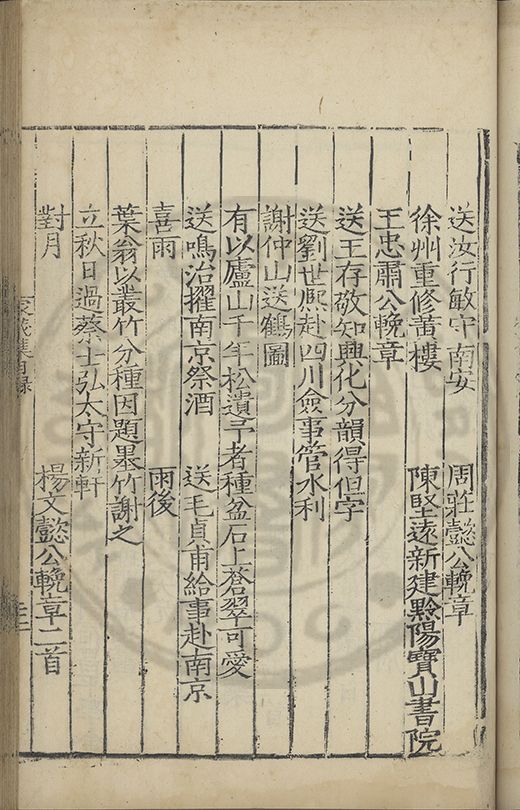 送汝行敏守南安　周莊懿公輓章
徐州重修黃樓　陳堅遠新建黔陽寶山書院
王忠肅公輓章
送王存敬知興化分韻得但字
送劉世熈赴四川僉事管水利
謝仲山送鶴圖
有以廬山千年松遺予者種盆石上蒼翠可愛
送鳴治擢南京祭酒　送毛貞甫給事赴南京
喜雨　雨後
葉翁以叢竹分種因題墨竹謝之
立秋日過蔡士弘太守新軒
對月　楊文懿公輓章二首
集目錄